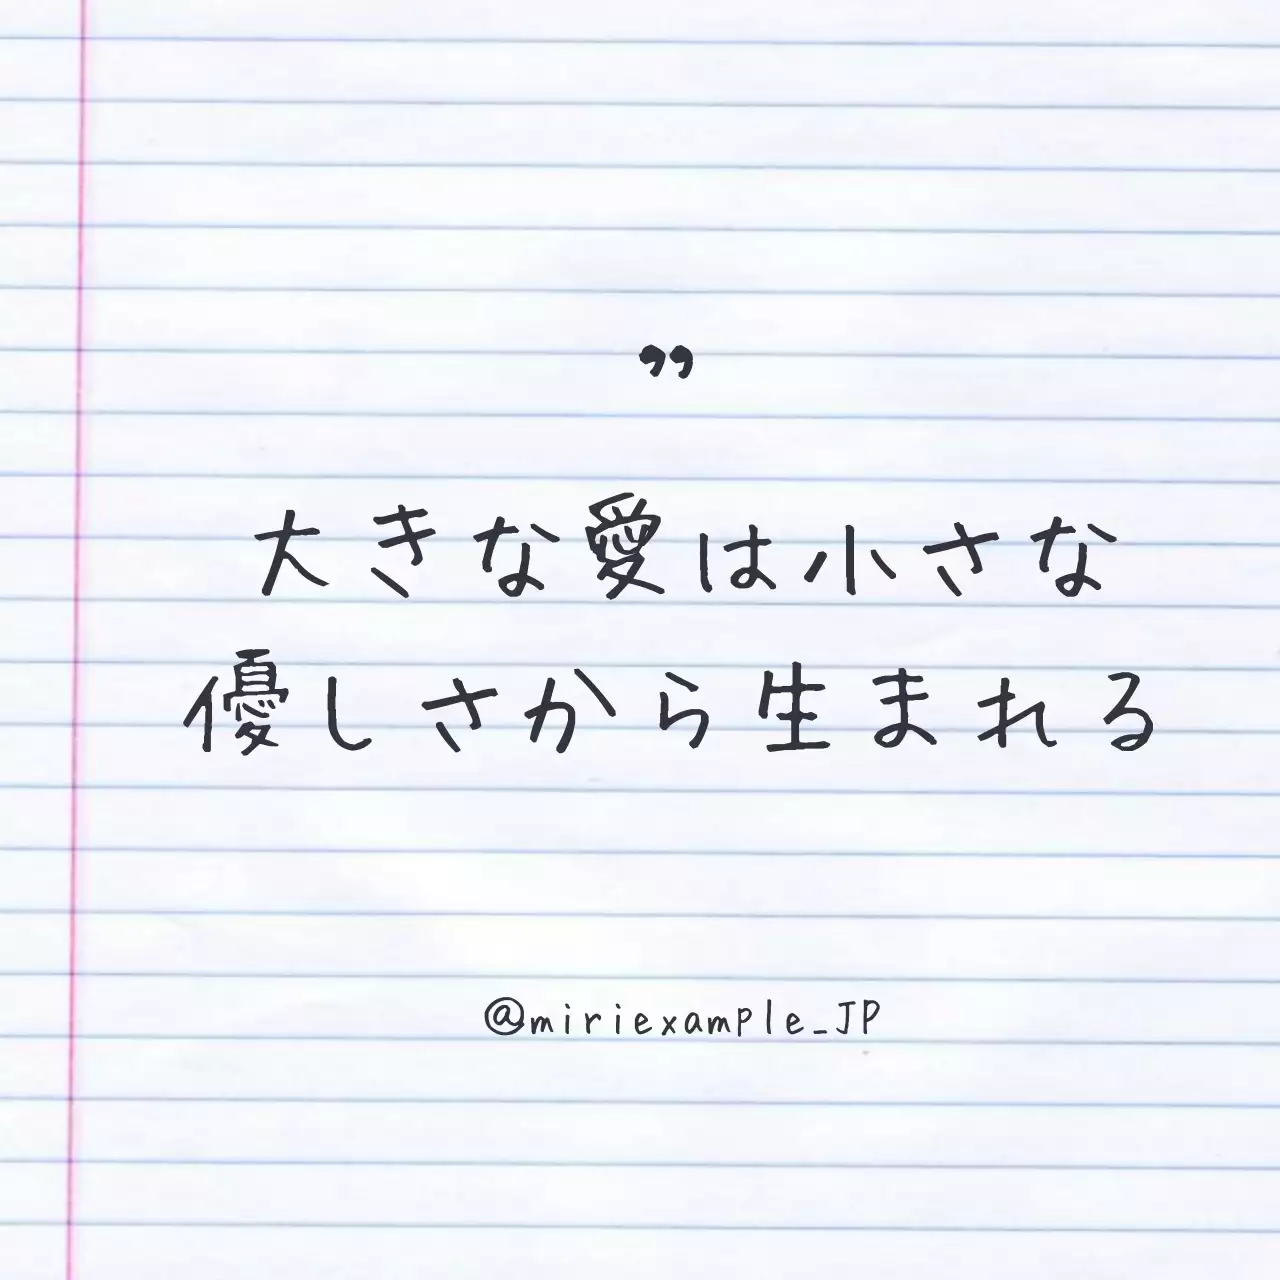 ”
大きな愛は小さな
優しさから生まれる
@miriexample_JP